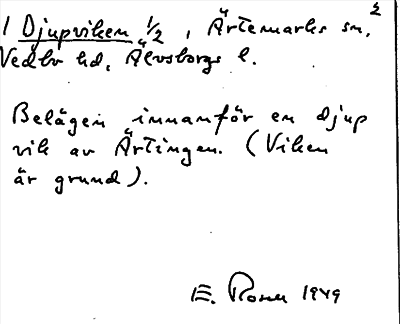 2
1 Djupviken 1/2, Ärtemarks sn,
Vedbo hd, Älvsborgs l.
Belägen innanför en djup
vik av Ärtingen. (Viken
är grund).
E. Rosell 1949